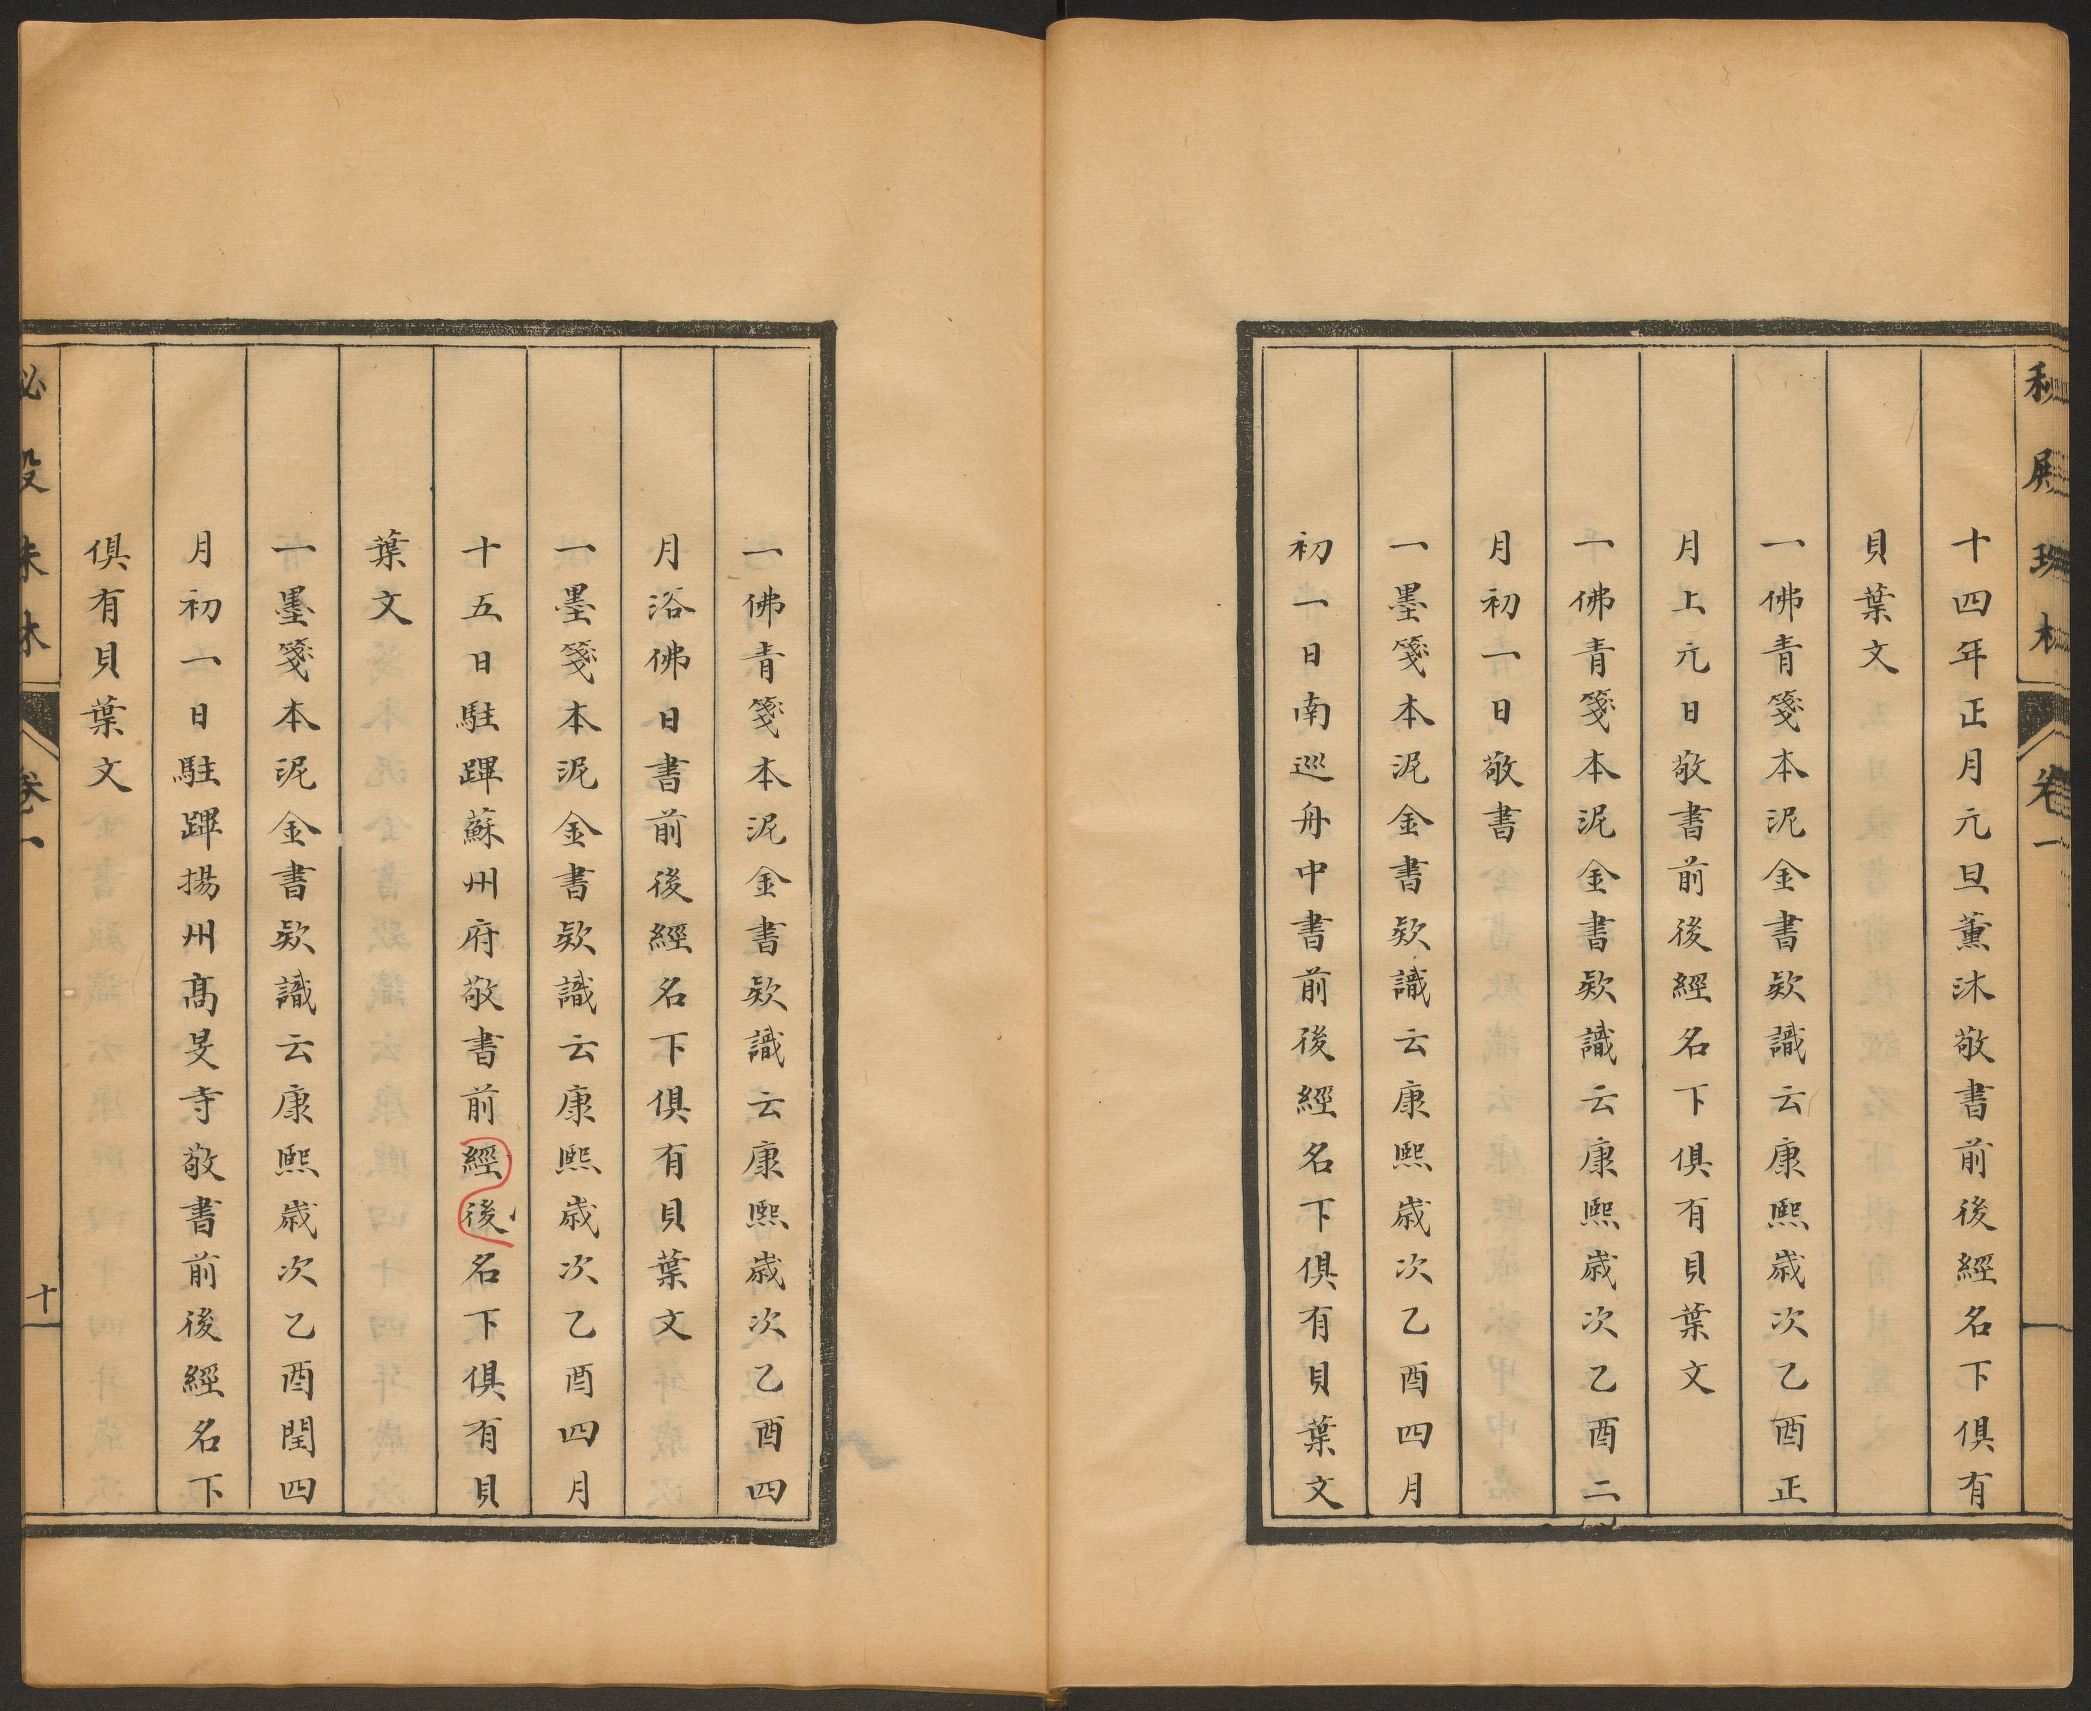 秘殿珠林 卷一
十四年正月元旦薰沐敬書前後經名下俱有
貝葉文
一佛青箋本泥金書欵識云康熙歲次乙酉正
月上元日敬書前後經名下俱有貝葉文
一佛青箋本泥金書欵識云康熙歲次乙酉二
月初一日敬書
一墨箋本泥金書欵識云康熙歲次乙酉四月
初一日南巡舟中書前後經名下俱有貝葉文
一佛青箋本泥金書欵識云康熙歲次乙酉四
月浴佛日書前後經名下俱有貝葉文
一墨箋本泥金書欵識云康熙歲次乙酉四月
十五日駐蹕蘇州府敬書前經後名下俱有貝
葉文
一墨箋本泥金書欵識云康熙歲次乙酉閏四
月初一日駐蹕揚州高旻寺敬書前後經名下
俱有貝葉文
秘殿珠林 卷一 十